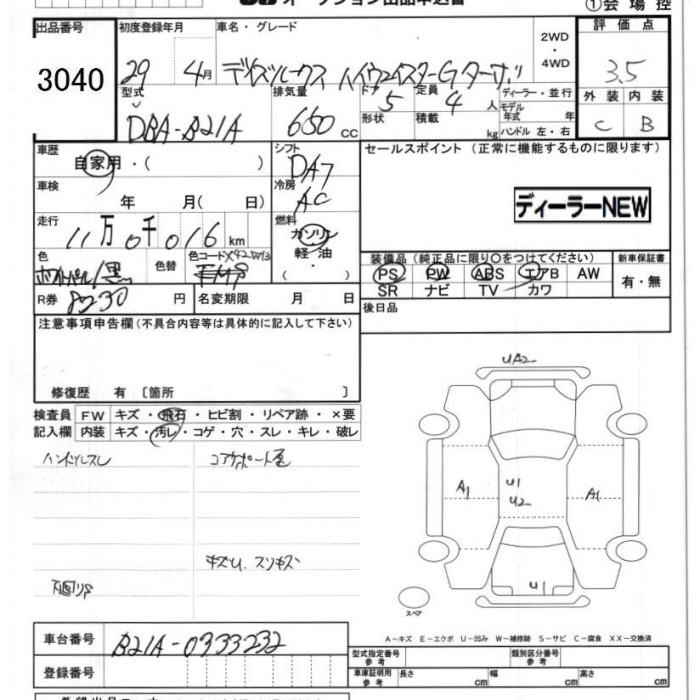 オークション出品申込書
①会場控
出品番号 初度登録年月 車名・グレード 2WD・4WD 評価点
3040 29年 4月 デイズルークス ハイウェイスターGターボ 3.5
型式 排気量 ドア 定員 ディーラー・並行 外装 内装
DBA-B21A 660cc 5 4人 モデル年式 年 C B
形状 積載 kg ハンドル 左・右
車歴 シフト セールスポイント (正常に機能するものに限ります)
自家用・( ) DA7
車検 冷房
年 月( 日) AC ディーラーNEW
走行 燃料
11万0千016km ガソリン
軽油
・
( )
色 色替 色コード 装備品 (純正品に限り○をつけてください) 新車保証書
ホワイトパール/黒 PS PW ABS エアB AW 有・無
SR ナビ TV カワ
R券 8230円 名変期限 月 日 後日品
注意事項申告欄 (不具合内容等は具体的に記入して下さい)
修復歴 有 〔箇所 〕
UA2
検査員 FW キズ・飛石・ヒビ割・リペア跡・×要
記入欄 内装 キズ・汚レ・コゲ・穴・スレ・キレ・破レ
ハンドルスレ
A1 U1 A1
U2
キズU. スリキズ
下廻りS
U1
スペア
A-キズ E-エクボ U-凹み W-補修跡 S-サビ C-腐食 XX-交換済
車台番号 B21A-0333232 型式指定番号 参考 類別区分番号 参考
登録番号 車庫証明用 参考 長さ cm 幅 cm 高さ cm